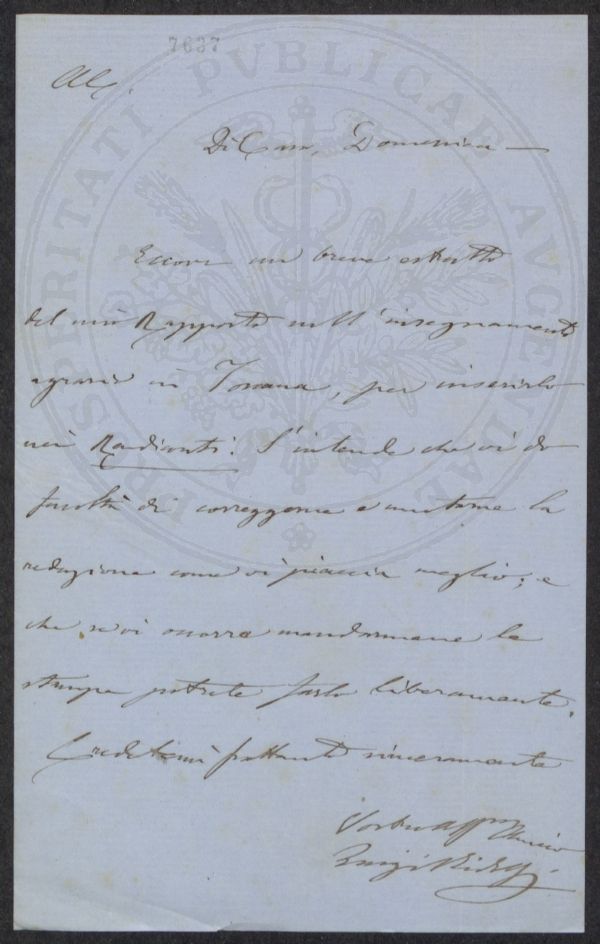 7637
Di Casa, Domenica —
Eccovi un breve estratto
del mio Rapporto sull'insegnamento
agrario in Toscana, per inserirlo
nei Rendiconti. S'intende che vi do
facoltà di correggerne e mutarne la
redazione come vi piaccia meglio; e
che se vi occorra mandarmene le
stampe potrete farlo liberamente.
Credetemi frattanto sinceramente
Vostro Aff.mo Amico
Luigi Ridolfi
PROSPERITATI PUBLICAE AUGENDAE